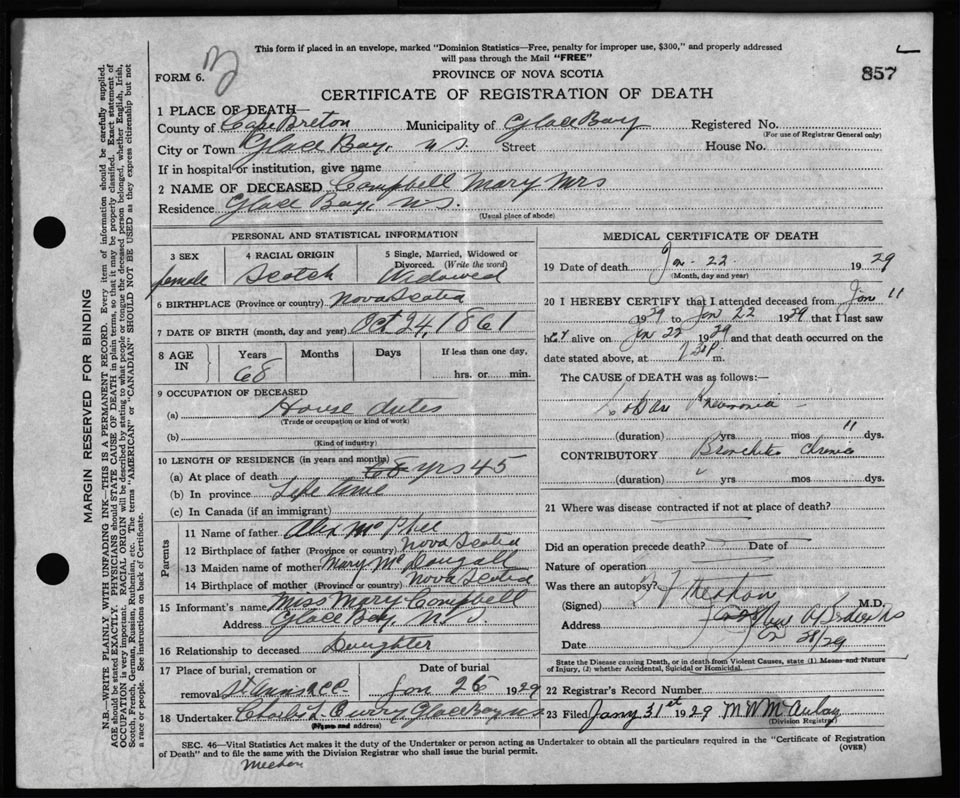 This form if placed in an envelope, marked "Dominion Statistics—Free, penalty for improper use, $300," and properly addressed
will pass through the Mail "FREE"
FORM 6.
PROVINCE OF NOVA SCOTIA
857
CERTIFICATE OF REGISTRATION OF DEATH
1 PLACE OF DEATH—
County of Cape Breton Municipality of Glace Bay Registered No.
(For use of Registrar General only)
City or Town Glace Bay, N.S. Street House No.
If in hospital or institution, give name
2 NAME OF DECEASED Campbell Mary Mrs
Residence Glace Bay, N.S.
(Usual place of abode)
PERSONAL AND STATISTICAL INFORMATION
3 SEX female
4 RACIAL ORIGIN Scotch
5 Single, Married, Widowed or
Divorced. (Write the word)
Widowed
6 BIRTHPLACE (Province or country) Nova Scotia
7 DATE OF BIRTH (month, day and year) Oct 24, 1861
8 AGE IN
Years 68 Months Days If less than one day,
hrs. or min.
9 OCCUPATION OF DECEASED
(a) House duties
(Trade or occupation or kind of work)
(b)
(Kind of industry)
10 LENGTH OF RESIDENCE (in years and months)
(a) At place of death 68 yrs 45
(b) In province Life time
(c) In Canada (if an immigrant)
Parents
11 Name of father Alex McPhee
12 Birthplace of father (Province or country) Nova Scotia
13 Maiden name of mother Mary McDougall
14 Birthplace of mother (Province or country) Nova Scotia
15 Informant's name Miss Mary Campbell
Address Glace Bay, N.S.
16 Relationship to deceased Daughter
17 Place of burial, cremation or
removal St Anns
Date of burial
Jan 25 1929
18 Undertaker Charles L. Curry, Glace Bay NS
(Name and address)
MEDICAL CERTIFICATE OF DEATH
19 Date of death Jan - 22 - 1929
(Month, day and year)
20 I HEREBY CERTIFY that I attended deceased from Jan 11
1929 to Jan 22 1929 that I last saw
her alive on Jan 22 1929 and that death occurred on the
date stated above, at P m.
The CAUSE of DEATH was as follows:—
Lobar Pneumonia
(duration) yrs mos 11 dys.
CONTRIBUTORY Bronchitis Chronic
(duration) yrs mos dys.
21 Where was disease contracted if not at place of death?
Did an operation precede death? Date of
Nature of operation
Was there an autopsy?
(Signed) M.D.
Address
Date
State the Disease causing Death, or in death from Violent Causes, state (1) Means and Nature
of Injury, (2) whether Accidental, Suicidal or Homicidal.
22 Registrar's Record Number
23 Filed Jany 31st 1929 M W McAulay
(Division Registrar)
SEC. 46—Vital Statistics Act makes it the duty of the Undertaker or person acting as Undertaker to obtain all the particulars required in the "Certificate of Registration
of Death" and to file the same with the Division Registrar who shall issue the burial permit.
(OVER)
MARGIN RESERVED FOR BINDING
N.B.—WRITE PLAINLY WITH UNFADING INK—THIS IS A PERMANENT RECORD. Every item of information should be carefully supplied.
AGE should be stated EXACTLY. PHYSICIANS should STATE CAUSE OF DEATH in plain terms, that it may be properly classified. Exact statement of
OCCUPATION is very important. RACIAL ORIGIN will be described by stating to what people or tongue the deceased person belonged, whether English, Irish,
Scotch, French, German, Russian, Ruthenian, etc. The terms "AMERICAN" or "CANADIAN" SHOULD NOT BE USED as they express citizenship but not
a race or people. See instructions on back of Certificate.